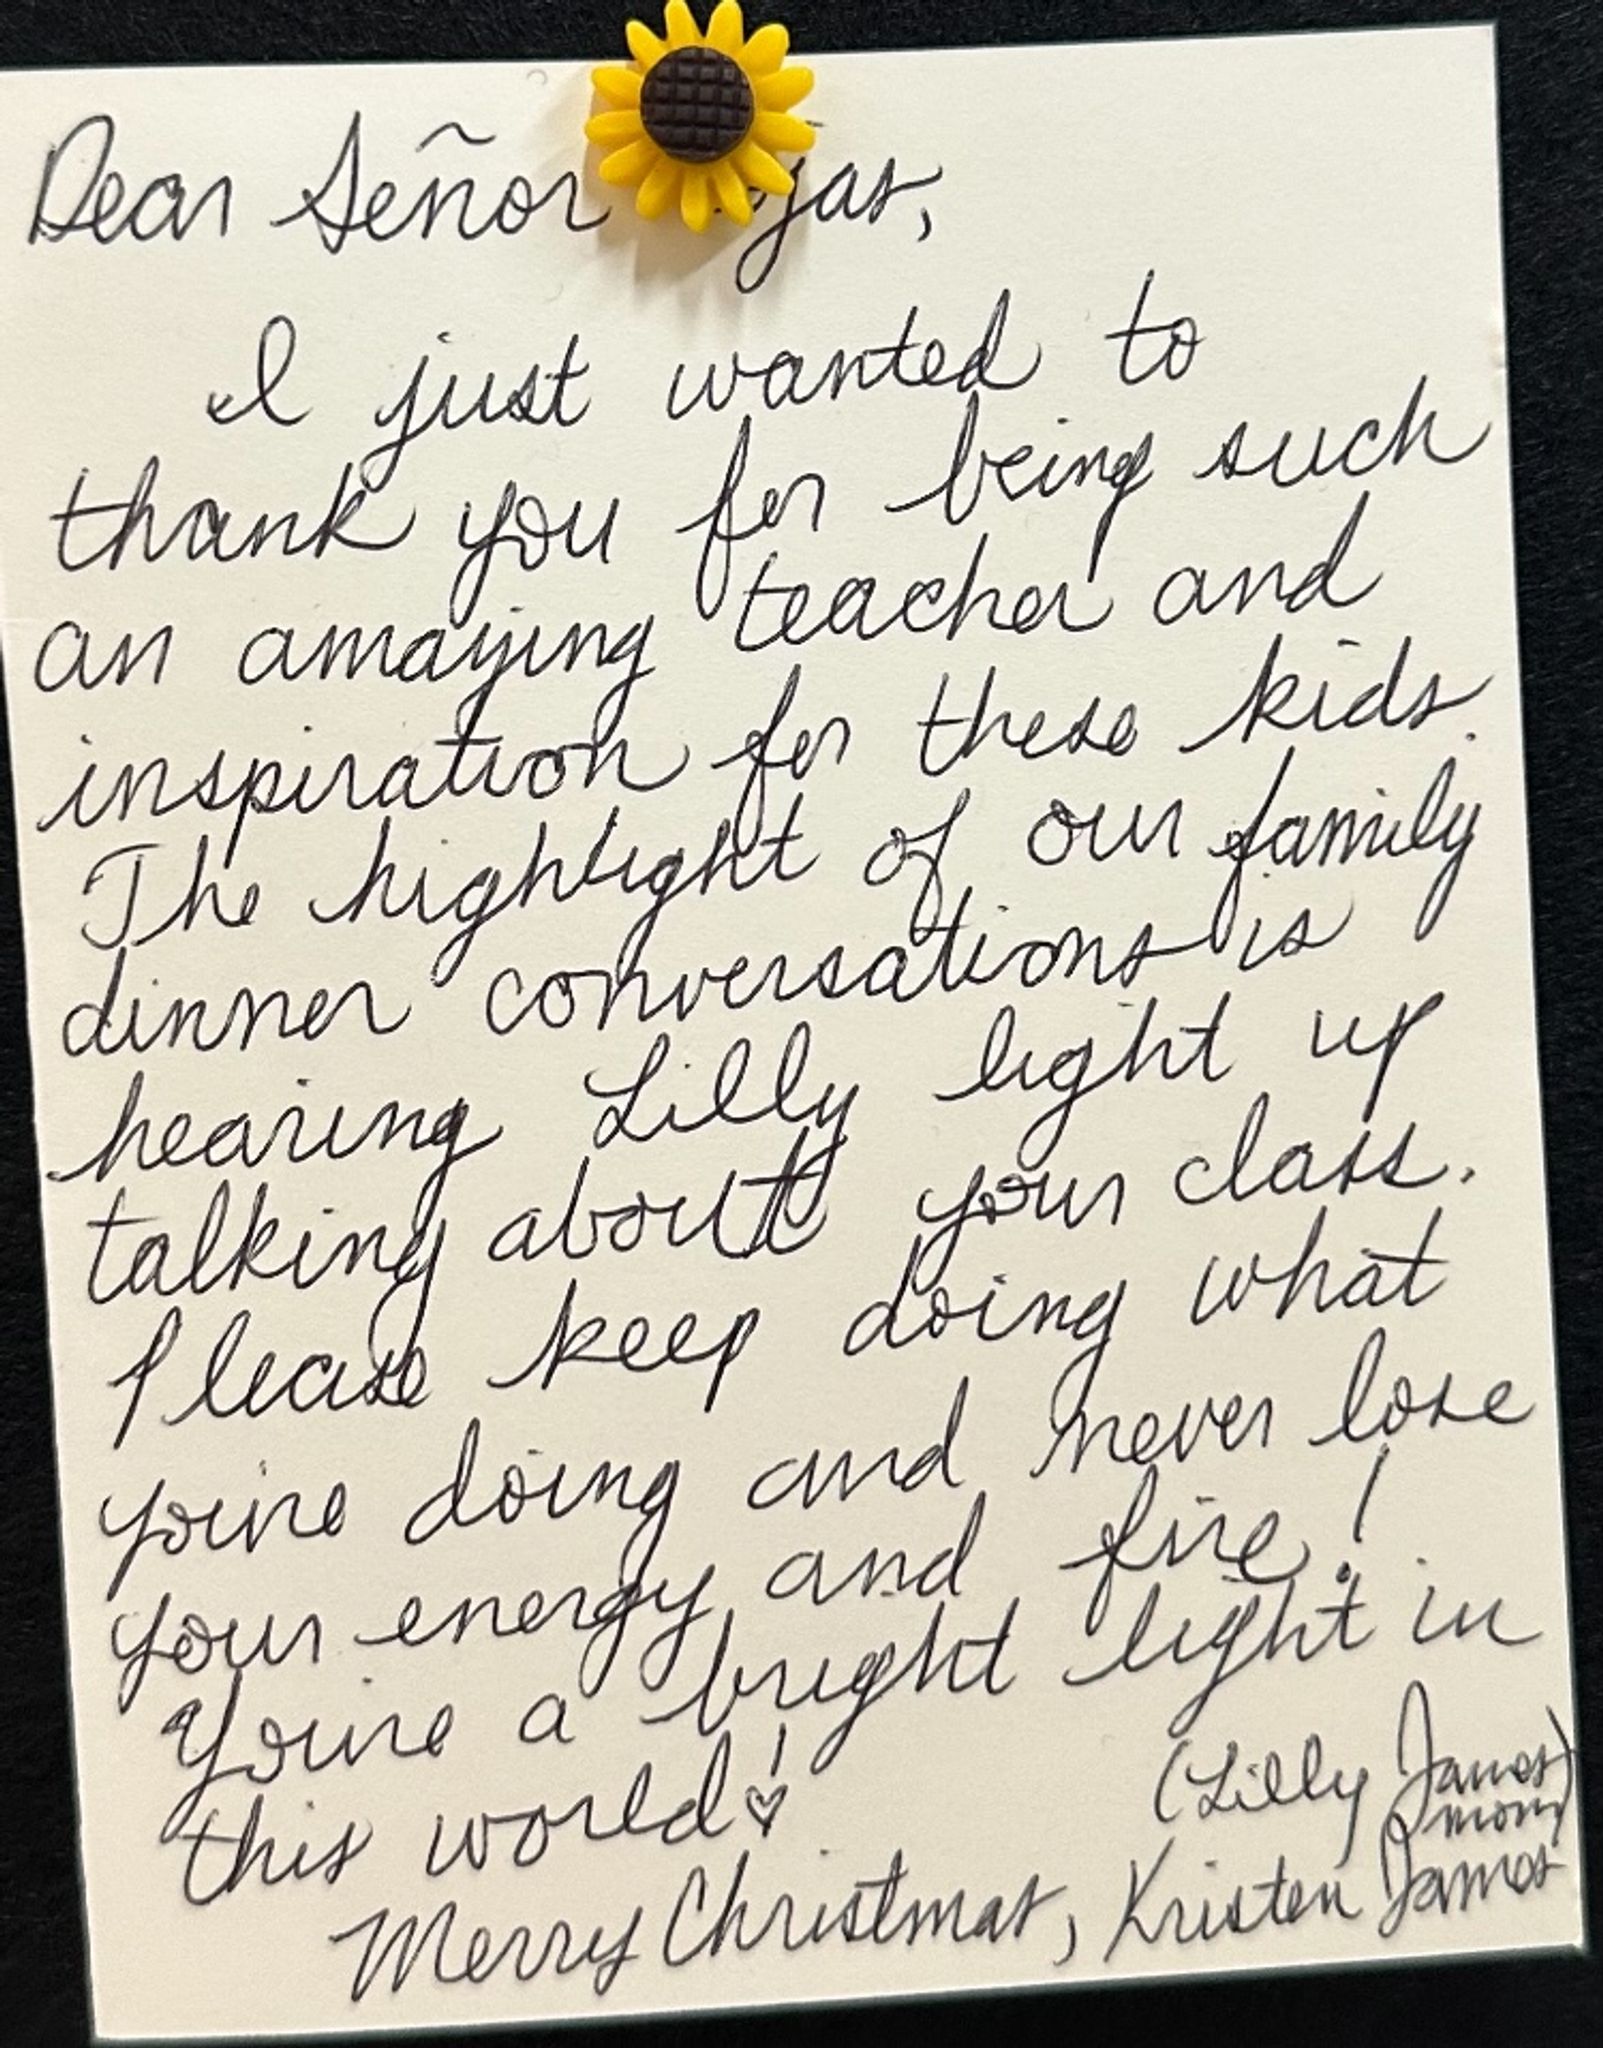 Dear Señor
I just wanted to
thank you for being such
an amazing teacher and
inspiration for these kids.
The highlight of our family
dinner conversations is
hearing Lilly light up
talking about your class.
Please keep doing what
you're doing and never lose
your energy and fire!
You're a bright light in
this world!
(Lilly James
mom)
Merry Christmas, Kristen James